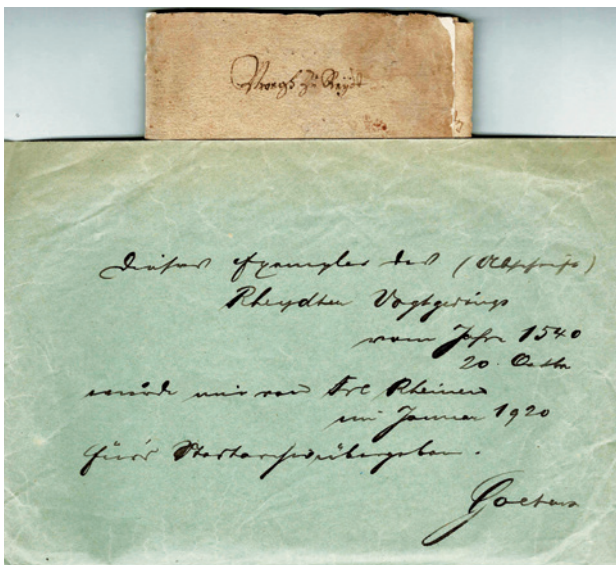 zu Reydt
Dieses Exemplar des (Abschrift)
Rheydter Vogtgedings
vom Jahre 1540
20. Octbr
wurde mir von Frl Rheinen
im Januar 1920
für's Stadtarchiv übergeben.
Goeters